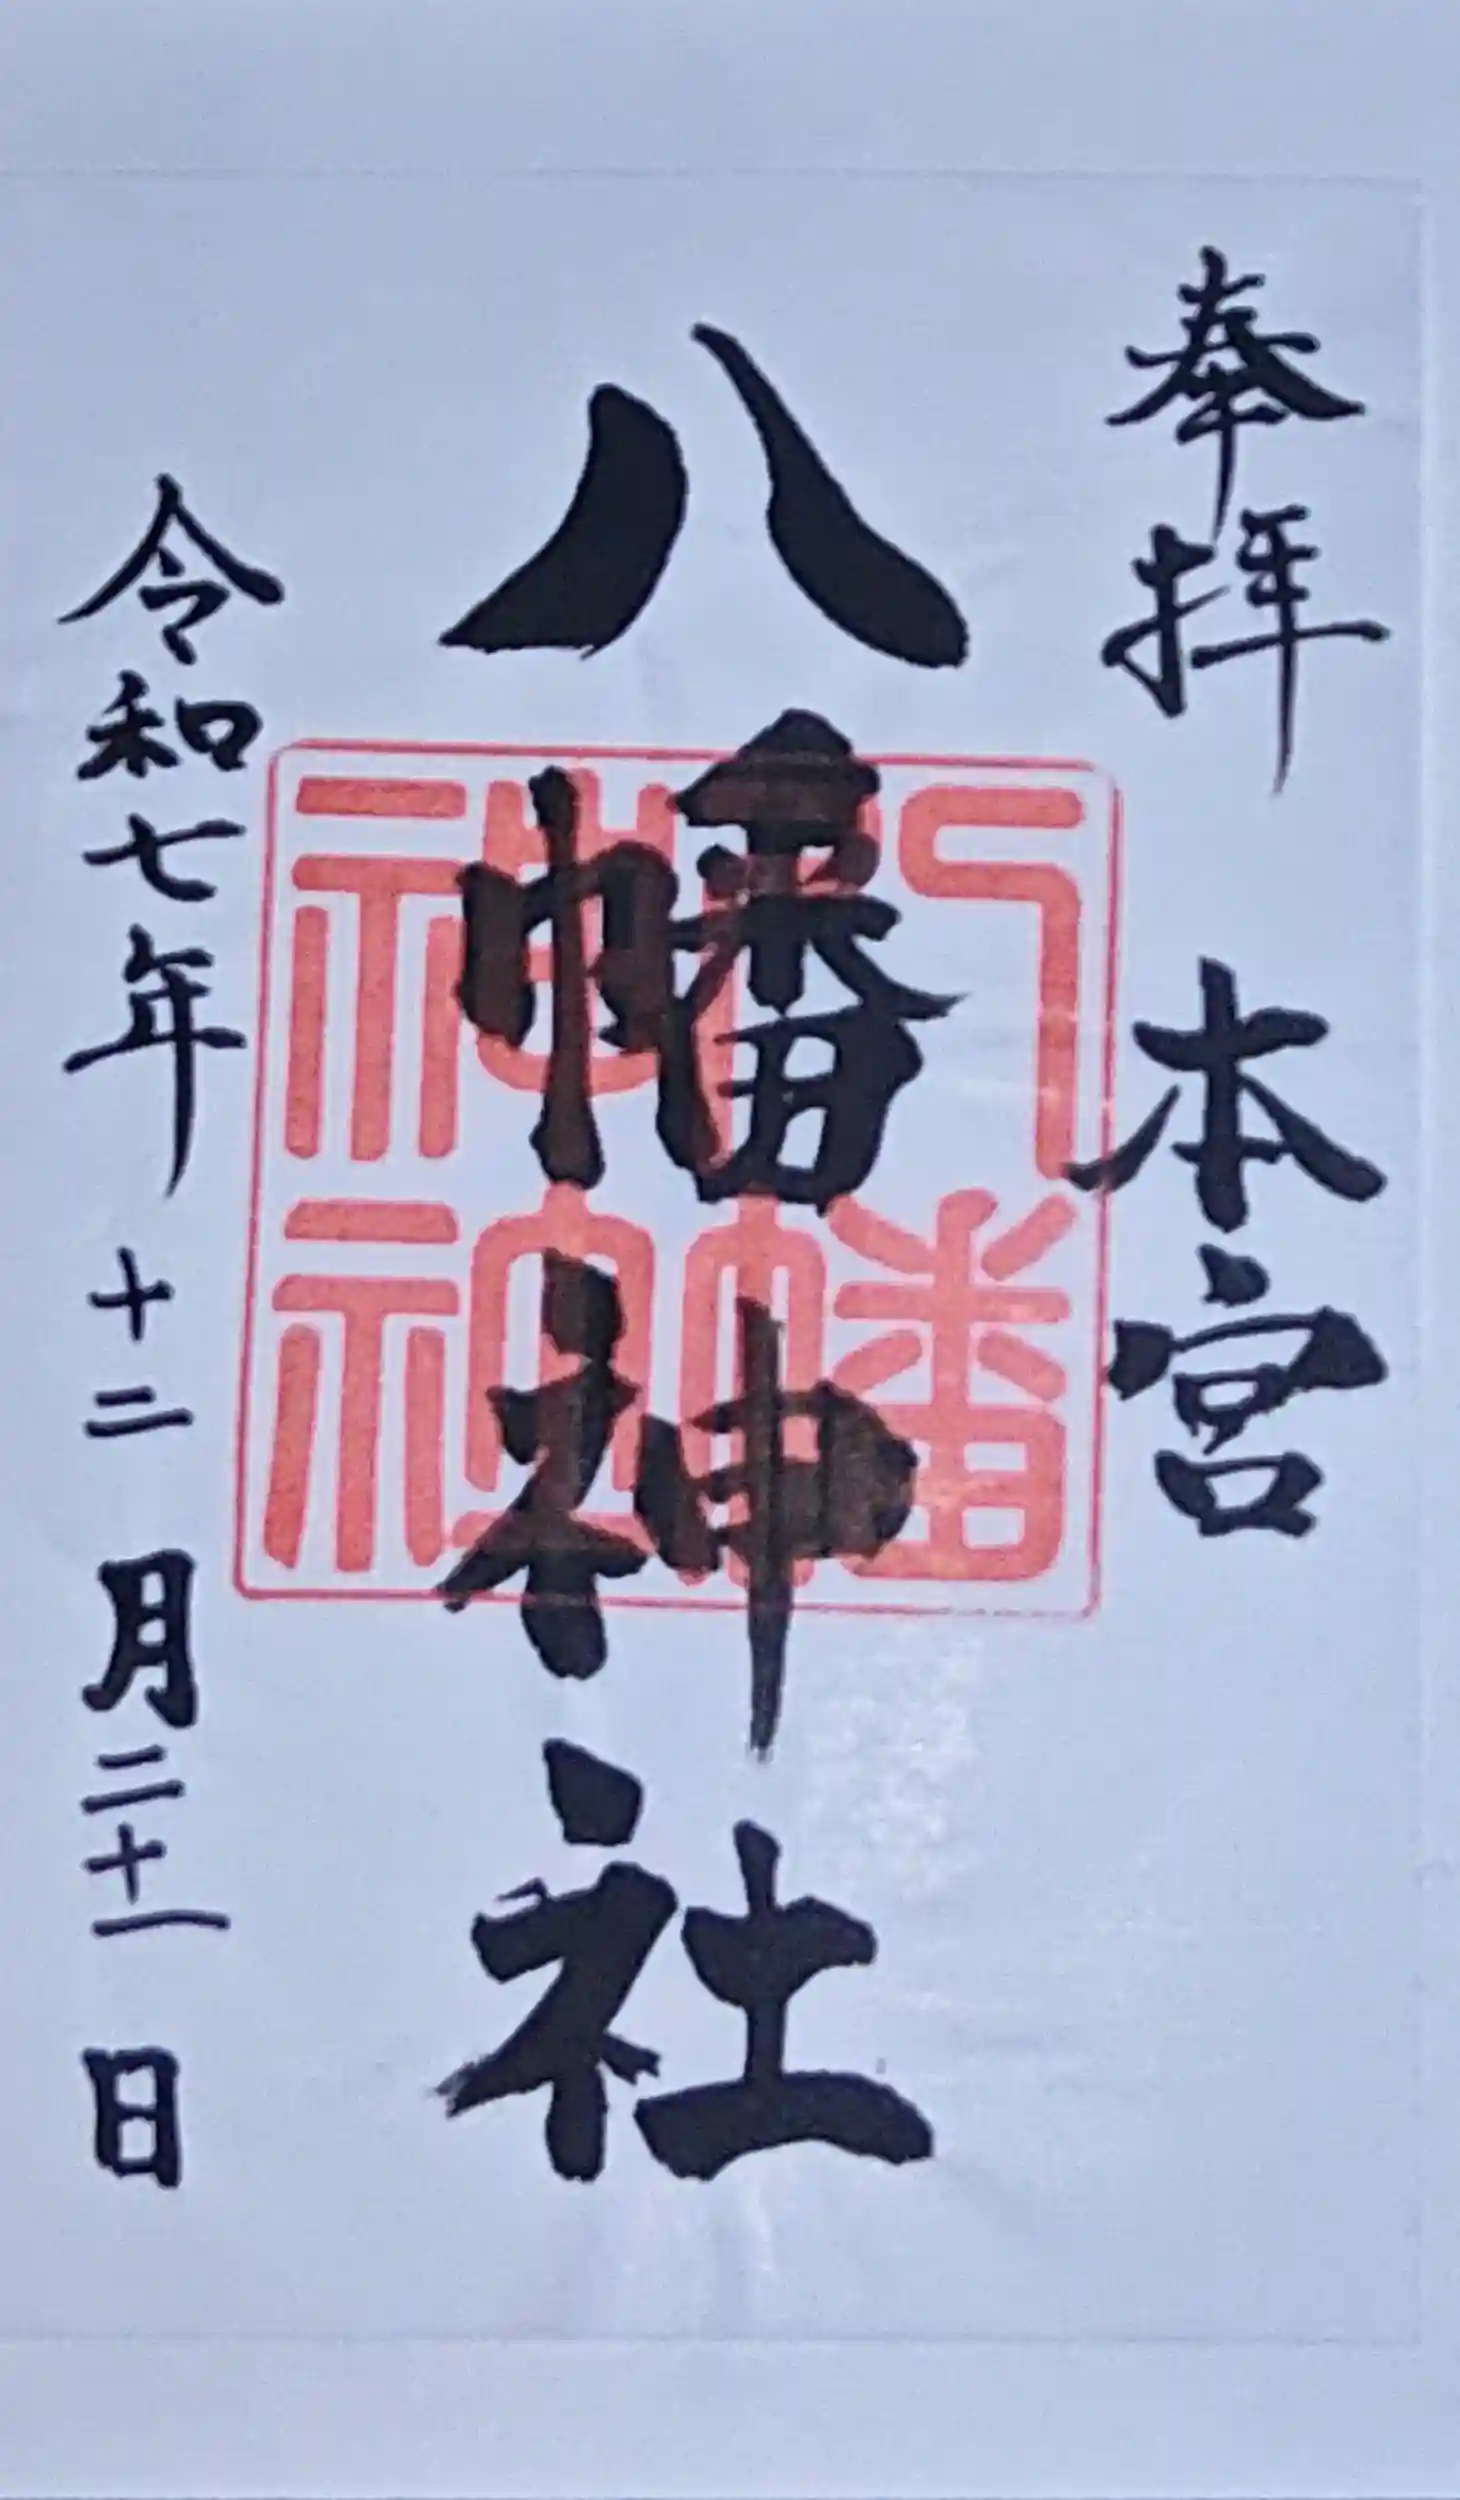 奉拝 本宮
八幡神社
令和七年 十二月二十一日
八幡
神社